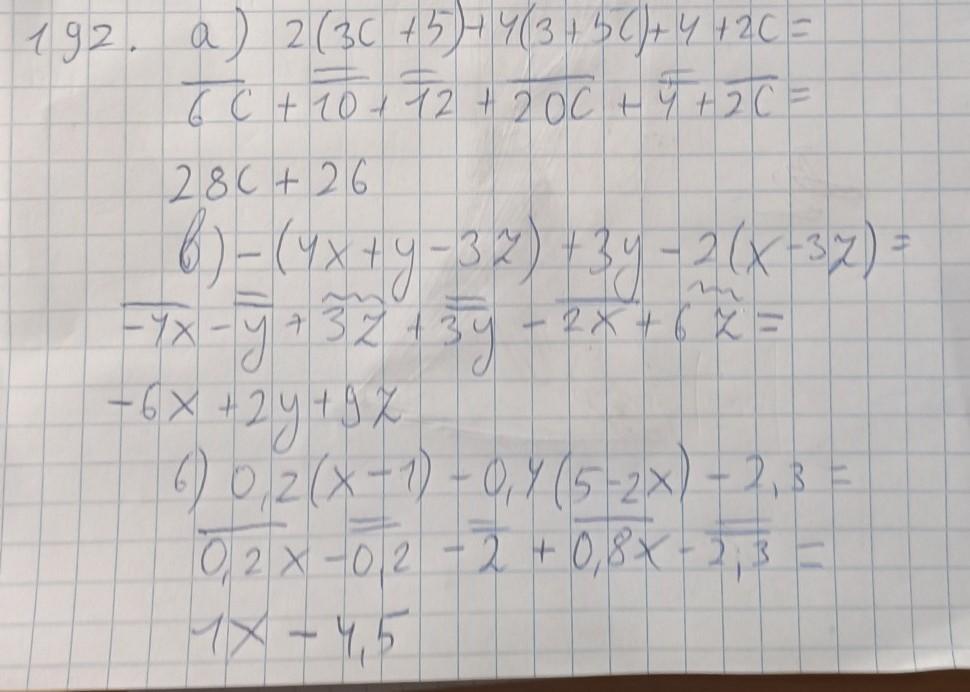 192. а) 2(3c + 5) + 4(3 + 5c) + 4 + 2c =
6c + 10 + 12 + 20c + 4 + 2c =
28c + 26
в) -(4x + y - 3z) + 3y - 2(x - 3z) =
-4x - y + 3z + 3y - 2x + 6z =
-6x + 2y + 9z
б) 0,2(x - 1) - 0,4(5 - 2x) - 2,3 =
0,2x - 0,2 - 2 + 0,8x - 2,3 =
1x - 4,5